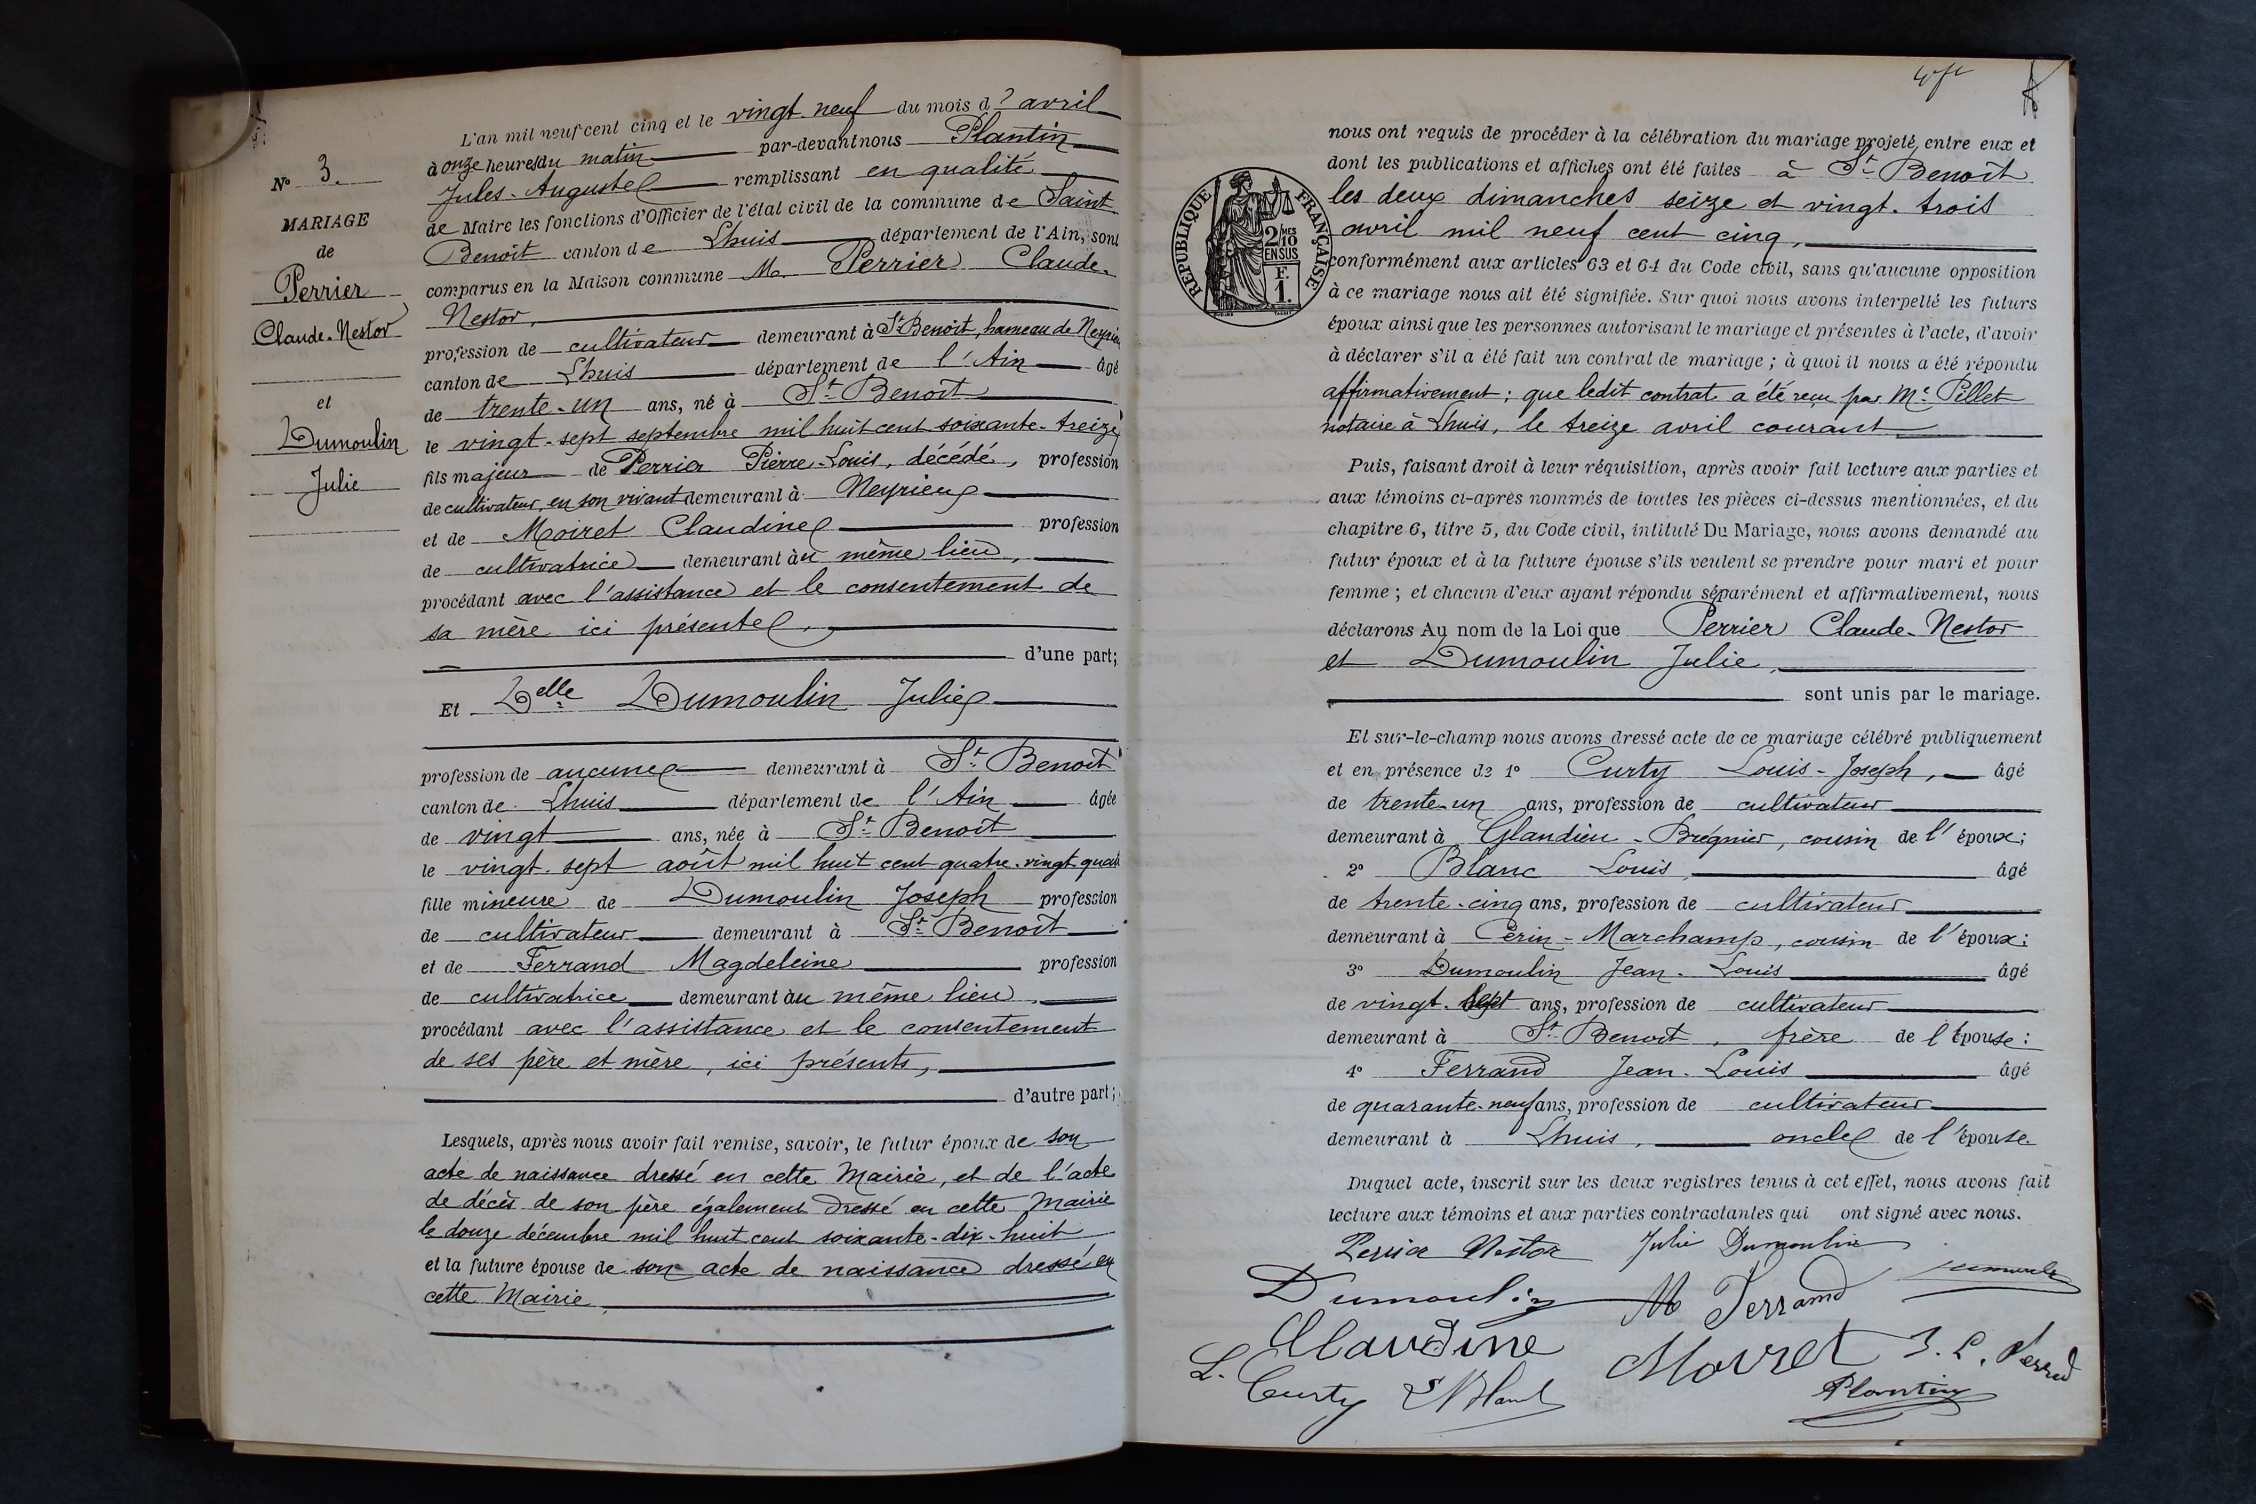 N° 3.
MARIAGE
de
Perrier
Claude-Nestor
et
Dumoulin
Julie
L'an mil neuf cent cinq et le vingt-neuf du mois d'avril
à onze heures du matin par-devant nous Plantin
Jules-Auguste remplissant en qualité
de Maire les fonctions d'Officier de l'état civil de la commune de Saint
Benoît canton de Lhuis département de l'Ain, sont
comparus en la Maison commune M. Perrier Claude-
Nestor,
profession de cultivateur demeurant à St Benoît, hameau de Neyrieu
canton de Lhuis département de l'Ain âgé
de trente-un ans, né à St Benoît
le vingt-sept septembre mil huit cent soixante-treize,
fils majeur de Perrier Pierre-Louis, décédé, profession
de cultivateur, en son vivant demeurant à Neyrieu
et de Moiret Claudine profession
de cultivatrice demeurant au même lieu,
procédant avec l'assistance et le consentement de
sa mère ici présente,
d'une part;
Et Delle Dumoulin Julie
profession de aucune demeurant à St Benoît
canton de Lhuis département de l'Ain âgée
de vingt ans, née à St Benoît
le vingt-sept août mil huit cent quatre-vingt-quat
fille mineure de Dumoulin Joseph profession
de cultivateur demeurant à St Benoît
et de Ferrand Magdeleine profession
de cultivatrice demeurant au même lieu,
procédant avec l'assistance et le consentement
de ses père et mère, ici présents,
d'autre part;
Lesquels, après nous avoir fait remise, savoir, le futur époux de son
acte de naissance dressé en cette Mairie, et de l'acte
de décès de son père également dressé en cette Mairie
le douze décembre mil huit cent soixante-dix-huit
et la future épouse de son acte de naissance dressé en
cette Mairie,
RÉPUBLIQUE FRANÇAISE
2/10 MES
EN SUS
F.
1.
nous ont requis de procéder à la célébration du mariage projeté, entre eux et
dont les publications et affiches ont été faites à St Benoît
les deux dimanches seize et vingt-trois
avril mil neuf cent cinq,
conformément aux articles 63 et 64 du Code civil, sans qu'aucune opposition
à ce mariage nous ait été signifiée. Sur quoi nous avons interpellé les futurs
époux ainsi que les personnes autorisant le mariage et présentes à l'acte, d'avoir
à déclarer s'il a été fait un contrat de mariage; à quoi il nous a été répondu
affirmativement; que ledit contrat a été reçu par Me Pillet
notaire à Lhuis, le treize avril courant
Puis, faisant droit à leur réquisition, après avoir fait lecture aux parties et
aux témoins ci-après nommés de toutes les pièces ci-dessus mentionnées, et du
chapitre 6, titre 5, du Code civil, intitulé Du Mariage, nous avons demandé au
futur époux et à la future épouse s'ils veulent se prendre pour mari et pour
femme; et chacun d'eux ayant répondu séparément et affirmativement, nous
déclarons Au nom de la Loi que Perrier Claude-Nestor
et Dumoulin Julie,
sont unis par le mariage.
Et sur-le-champ nous avons dressé acte de ce mariage célébré publiquement
et en présence de 1° Curty Louis-Joseph, âgé
de trente-un ans, profession de cultivateur
demeurant à Glandieu-Brégnier, cousin de l'époux;
2° Blanc Louis, âgé
de trente-cinq ans, profession de cultivateur
demeurant à Cerin-Marchamp, cousin de l'époux;
3° Dumoulin Jean-Louis âgé
de vingt-sept ans, profession de cultivateur
demeurant à St Benoit, frère de l'épouse;
4° Ferrand Jean-Louis âgé
de quarante-neuf ans, profession de cultivateur
demeurant à Lhuis, oncle de l'épouse
Duquel acte, inscrit sur les deux registres tenus à cet effet, nous avons fait
lecture aux témoins et aux parties contractantes qui ont signé avec nous.
Perrier Nestor Julie Dumoulin
Dumoulin M Ferrand
Claudine Moiret J. L. Ferrand
L. Curty Plantin